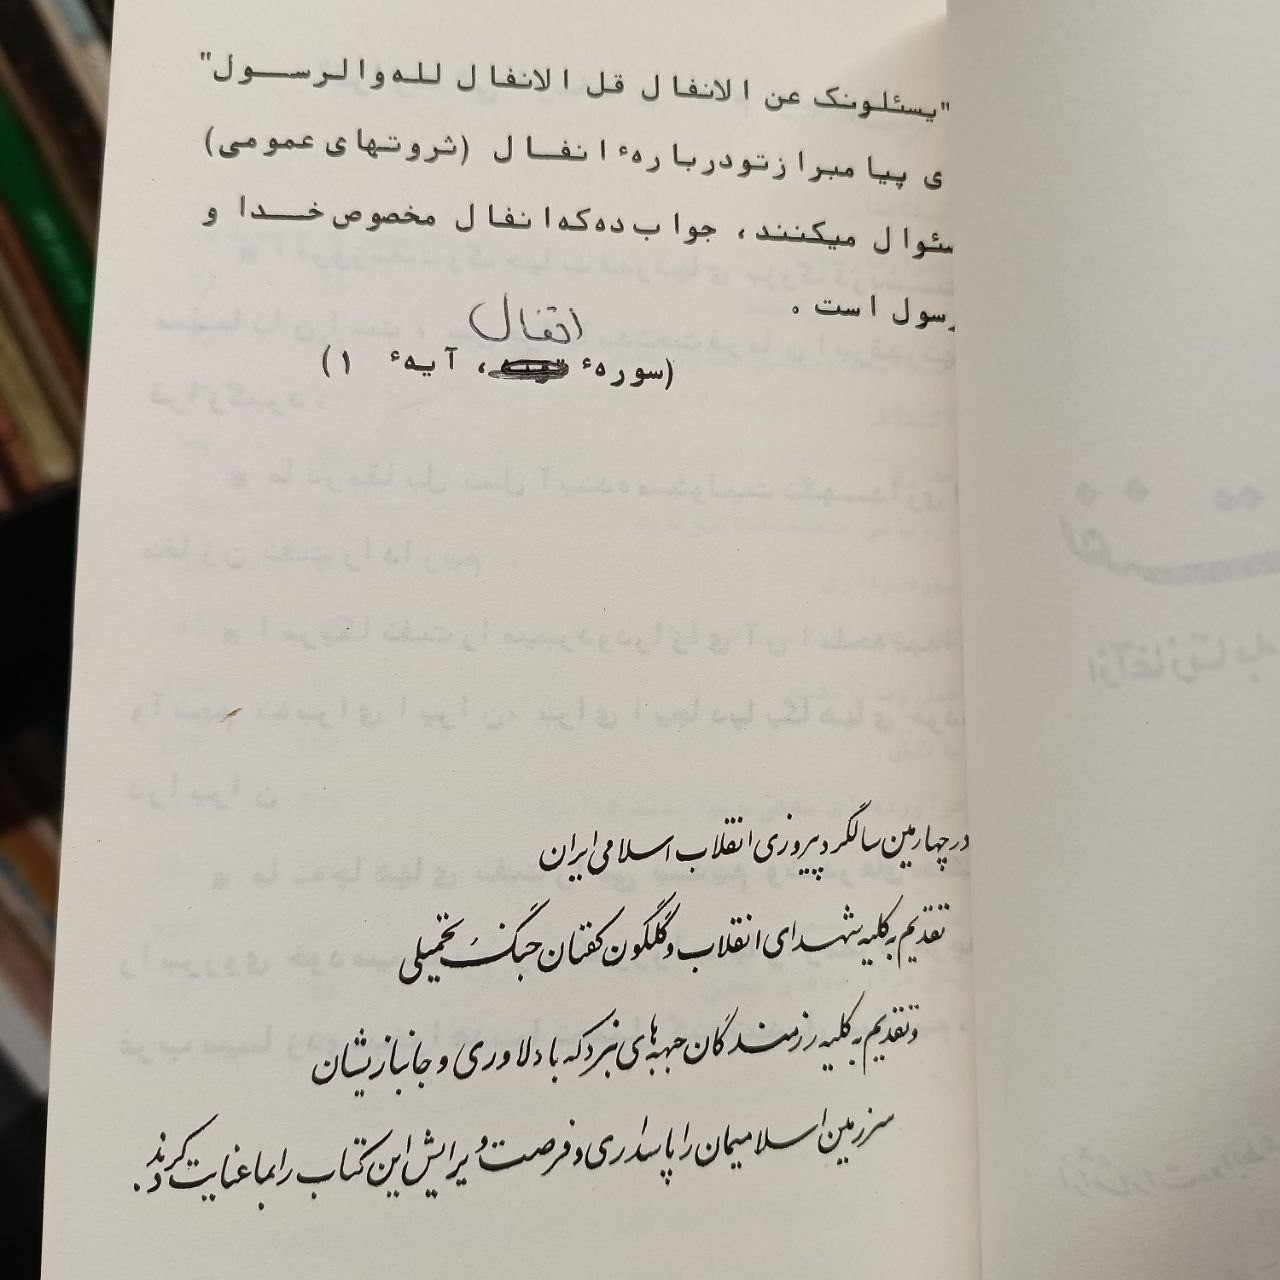 "یسئلونک عن الانفال قل الانفال لله والرسول"
ی پیامبر از تو درباره‌ٔ انفال (ثروتهای عمومی)
سئوال میکنند، جواب ده که انفال مخصوص خدا و
رسول است.
انفال
(سوره‌ٔ ، آیه‌ٔ ۱)
در چهارمین سالگرد پیروزی انقلاب اسلامی ایران
تقدیم به کلیه شهدای انقلاب و گلگون کفنان جنگ تحمیلی
و تقدیم به کلیه رزمندگان جبهه‌های نبرد که با دلاوری و جانبازیشان
سرزمین اسلامیمان را پاسداری و فرصت ویرایش این کتاب را بما عنایت کردند.